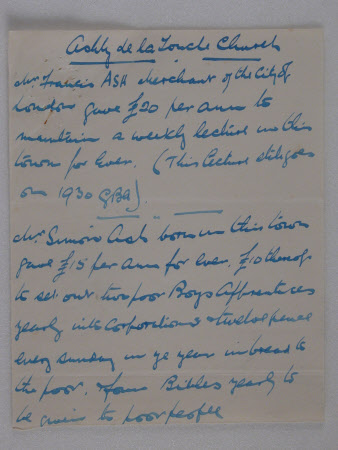 Ashby de la Zouche Church
Mr. Francis ASH Merchant of the City of
London gave £20 per ann to
maintain a weekly lecture in this
town for Ever. (This lecture still goes
on 1930 GBA)
Mr. Simon Ash born in this town
gave £15 per ann for ever. £10 thereof
to set out two poor Boys Apprentices
yearly into Corporations & twelve pence
every Sunday in ye year in bread to
the poor. & four Bibles yearly to
be given to poor people